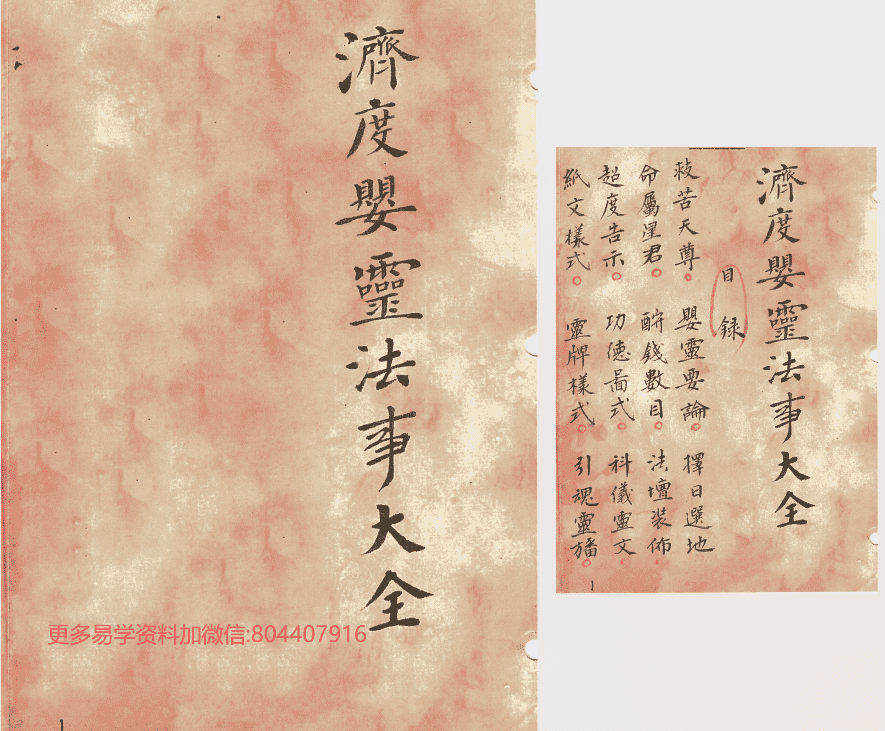 濟度嬰靈法事大全
更多易学资料加微信:804407916
濟度嬰靈法事大全
目録
救苦天尊。嬰靈要論。擇日選地
命屬星君。酧錢數目。法壇装佈。
超度告示。功德啚式。科儀靈文。
紙文樣式。靈牌樣式。引魂靈旛。